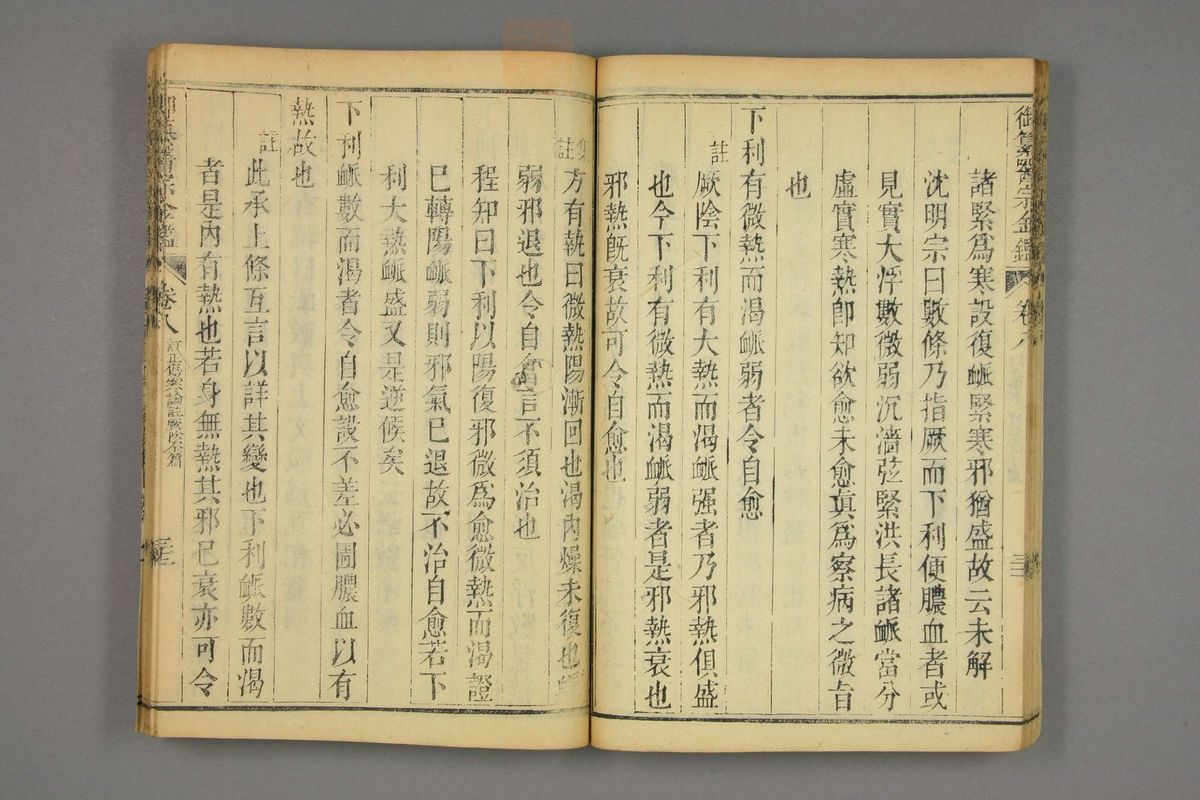 御纂醫宗金鑑 卷八
諸緊爲寒設復衇緊寒邪猶盛故云未解
沈明宗曰數條乃指厥而下利便膿血者或
見實大浮數微弱沉濇弦緊洪長諸衇當分
虛實寒熱卽知欲愈未愈眞爲察病之微旨
也
下利有微熱而渴衇弱者令自愈
註 厥陰下利有大熱而渴衇强者乃邪熱俱盛
也今下利有微熱而渴衇弱者是邪熱衰也
邪熱旣衰故可令自愈也
集註 方有執曰微熱陽漸回也渴內燥未復也衇
弱邪退也令自愈言不須治也
程知曰下利以陽復邪微爲愈微熱而渴證
已轉陽衇弱則邪氣已退故不治自愈若下
利大熱衇盛又是逆候矣
下利衇數而渴者令自愈設不差必圊膿血以有
熱故也
註 此承上條互言以詳其變也下利衇數而渴
者是內有熱也若身無熱其邪已衰亦可令
卷八 訂正傷寒論註厥陰全篇